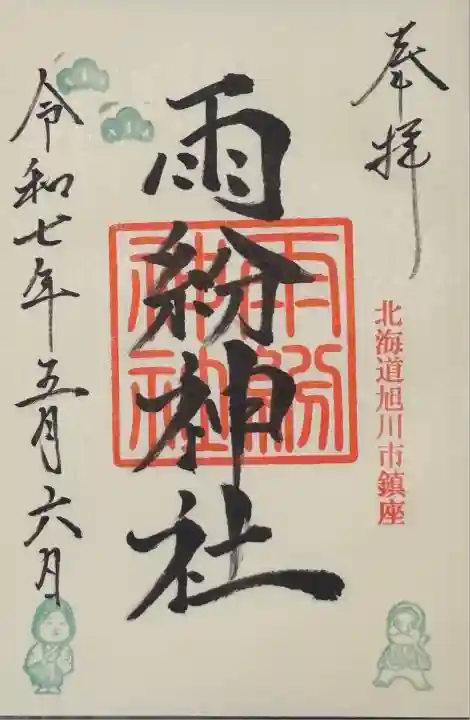 奉拝
北海道旭川市鎮座
雨紛神社
雨紛
神社
令和七年五月六日